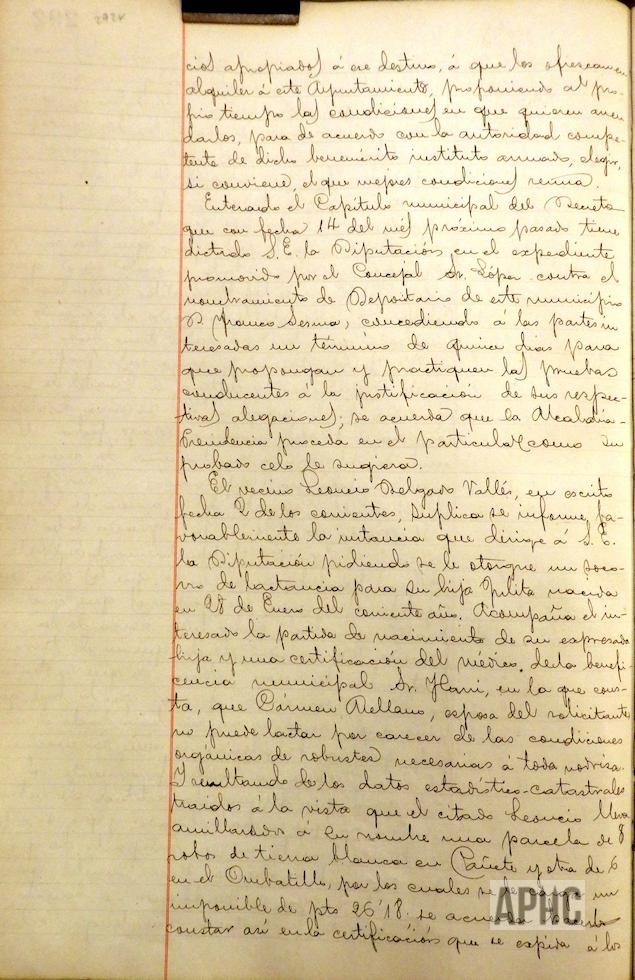 cios apropiados á ese destino, á que los ofrezcan en
alquiler á este Ayuntamiento, proponiendo al pro-
pio tiempo las condiciones en que quieren arren
darlos, para de acuerdo con la autoridad compe-
tente de dicho benemérito instituto armado, elegir,
si conviene, el que mejores condiciones reuna.
Enterando el Capítulo municipal del Decreto
que con fecha 14 del mes próximo pasado tiene
dictado S.E. la Diputación en el expediente
promovido por el Concejal Sr. López contra el
nombramiento de Depositario de este municipio
D. Franco Sesma, concediendo á las partes in
teresadas un término de quince dias para
que propongan y practiquen las pruebas
conducentes á la justificación de sus respec-
tivas alegaciones; se acuerda que la Alcaldía-
Presidencia proceda en el particular como su
probado celo le sugiera.
El vecino Leoncio Delgado Vallés, en escrito
fecha 2 de los corrientes, suplica se informe fa-
vorablemente la instancia que dirige á S. E.
la Diputación pidiendo se le otorgue un soco-
rro de lactancia para su hija nacida
en 28 de Enero del corriente año. Acompaña el in-
teresado la partida de nacimiento de su expresada
hija y una certificación del médico de la benefi-
cencia municipal Sr. en la que cons-
ta, que Cármen Arellano, esposa del solicitante
no puede lactar por carecer de las condiciones
orgánicas de robustez necesarias á toda nodriza.
Y resultando de los datos estadístico-catastrales
traidos á la vista que el citado Leoncio lleva
amillarados á su nombre una parcela de 8
robos de tierra blanca en Cañete y otra de 6
en el Ombatillo, por los cuales se le carga un
imponible de pts 26'18. se acuerda hacerlo
constar asi en la certificación que se expida á los
APHC